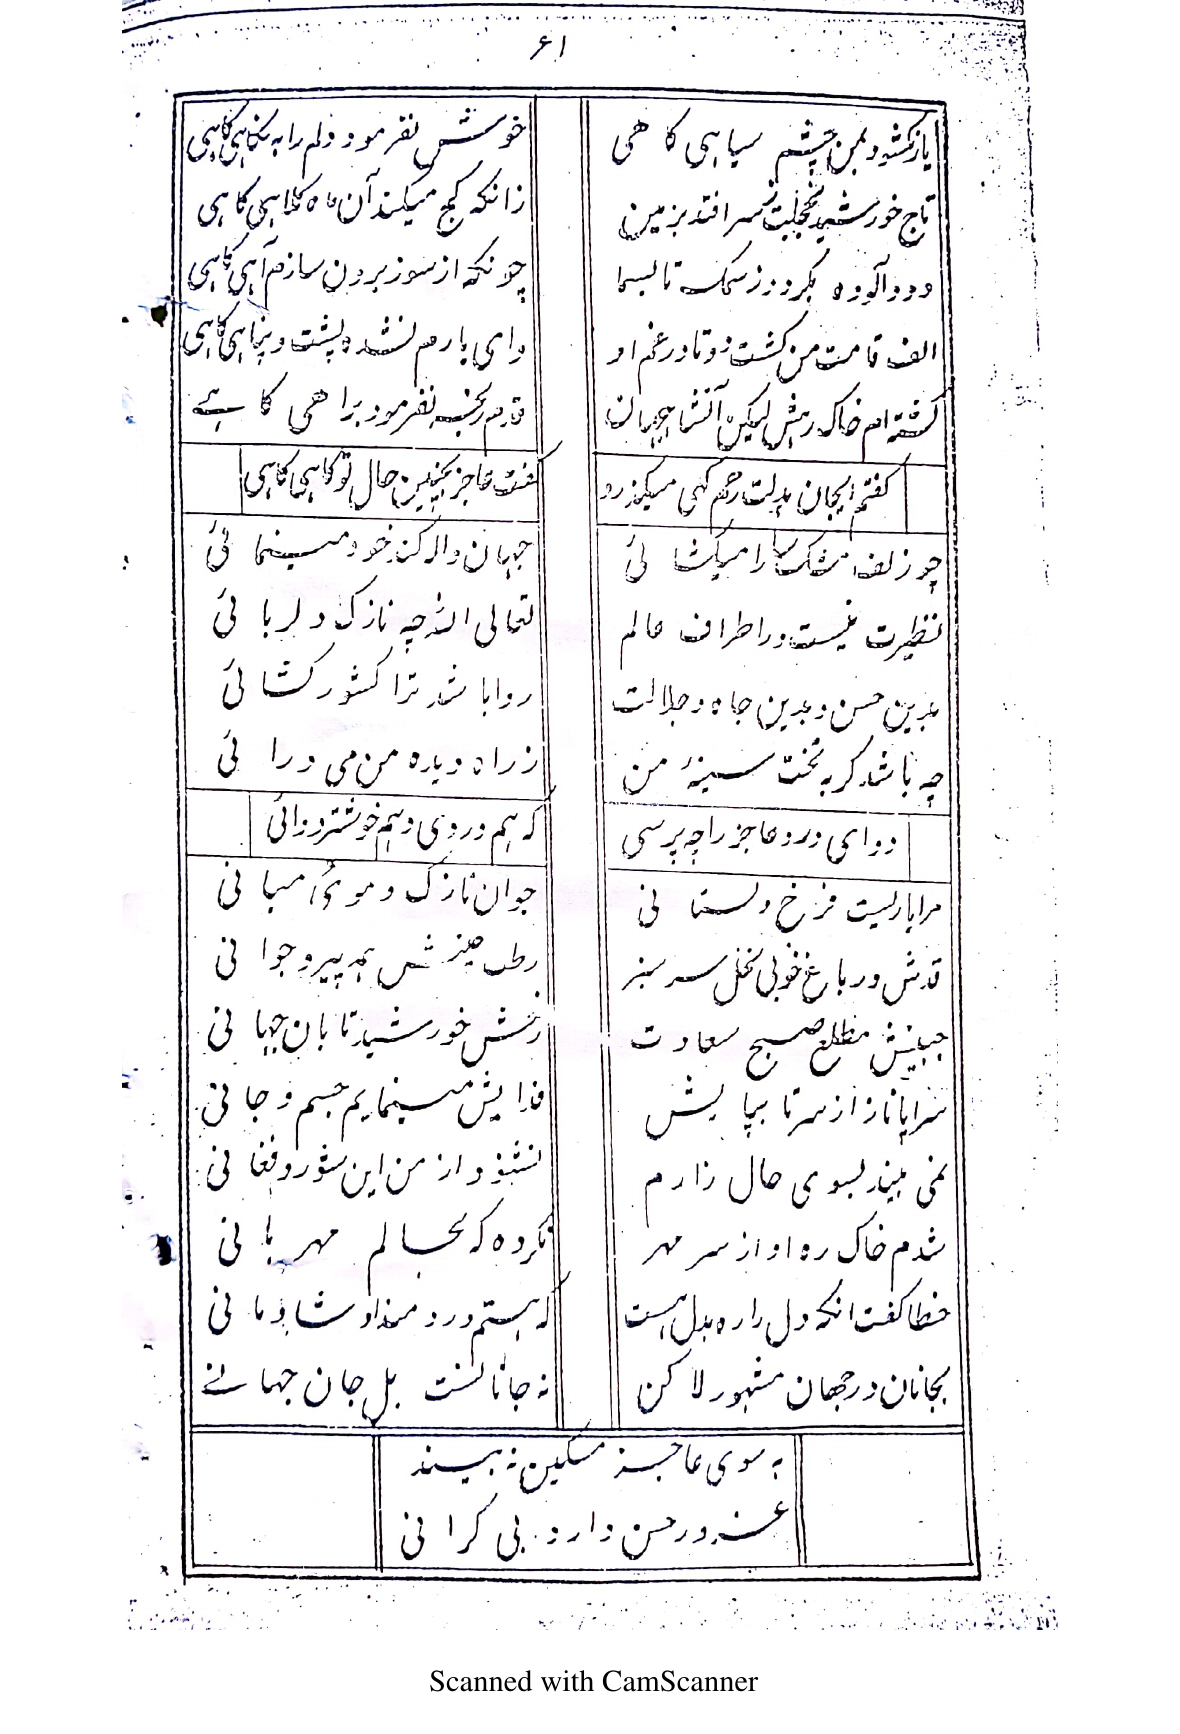 ۶۱
باز نکشود بمن چشم سیاهی کاهی
خوش نفرمود دلم را به نکاهی کاهی
تاج خورشید بخجلت ز سر افتد بزمین
زانکه کج میکند آن ماه کلاهی کاهی
دود آلوده بکردد ز سمک تا بسما
چونکه از سوز برون سازم آهی کاهی
الف قامت من کشت دوتا در غم او
وای یارم نشده پشت و پناهی کاهی
کشته ام خاک رهش لیکن آنشاه جهان
قدم رنجه نفرمود براهی کاهے
کفتم ایجان بدلت رحم کهی میکذرد
کفت عاجز بچنین حال تو کاهی کاهی
چو زلف مشکسا را میکشائی
جهان واله کن خود مینمائی
نظیرت نیست در اطراف عالم
تعالی الله چه نازک دلربائی
بدین حسن و بدین جاه و جلالت
روا باشد ترا کشور کشائی
چه باشد کر به تخت سینهٔ من
ز راه دیده من می درائی
دوای درد عاجز را چه پرسی
که هم دردی و هم خوشتر دوائی
مرا یاریست فرخ دلستانی
جوان نازک و موی میانی
قدش در باغ خوبی نخل سرسبز
رطب چینش همه پیر و جوانی
جبینش مطلع صبح سعادت
رخش خورشید تابان جهانی
سراپا ناز از سر تا بپایش
فدایش مینمایم جسم و جانی
نمی بیند بسوی حال زارم
نشنود از من این شور و فغانی
شدم خاک ره او از سر مهر
نکرده که بحالم مهربانی
خطا کفت انکه دل را ره بدل هست
که هستم درد مند او شادمانی
بجانان در جهان مشهور لاکن
نه جانانست بل جان جهانے
به سوی عاجز مسکین نه بیند
غرور حسن دارد بی کرانی
Scanned with CamScanner